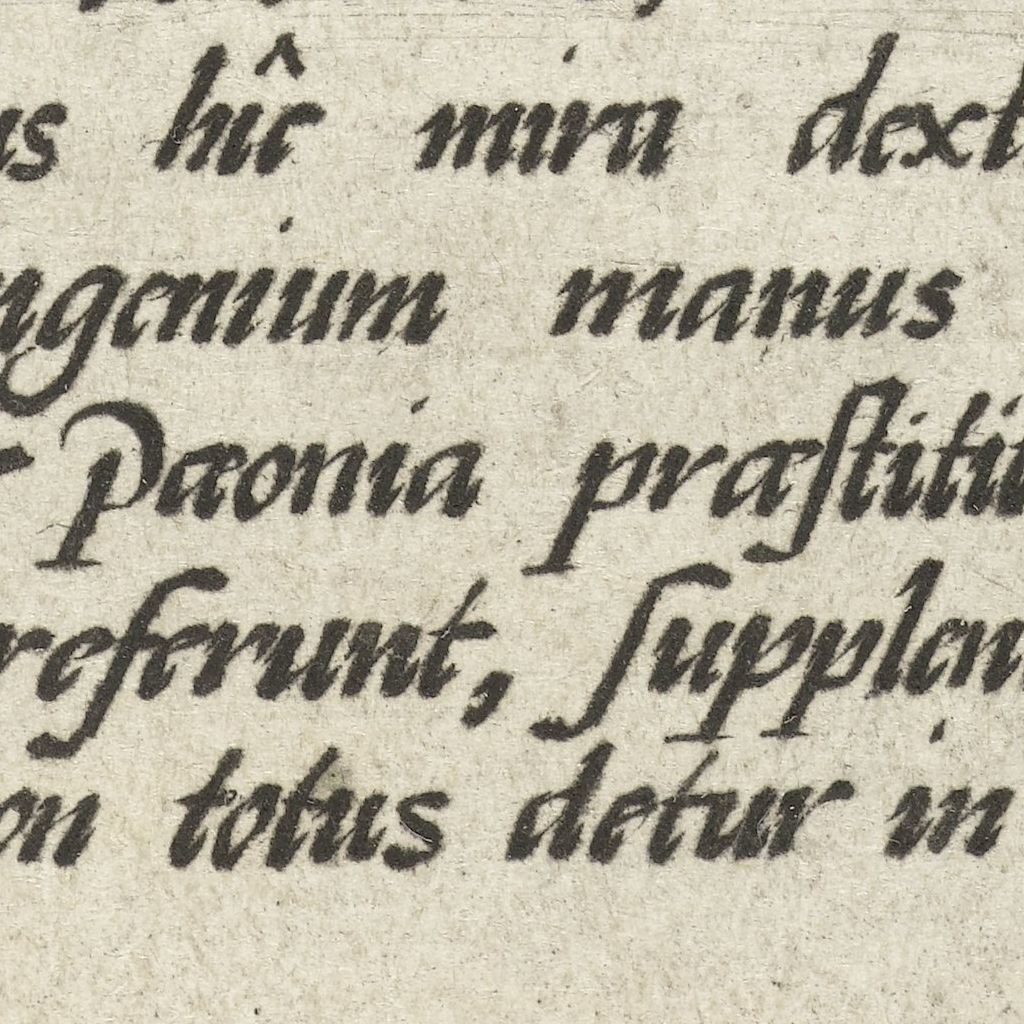 us hîc mira dext
ngenium manus
Pæonia præſtitit
referunt, ſupplen
on totus detur in